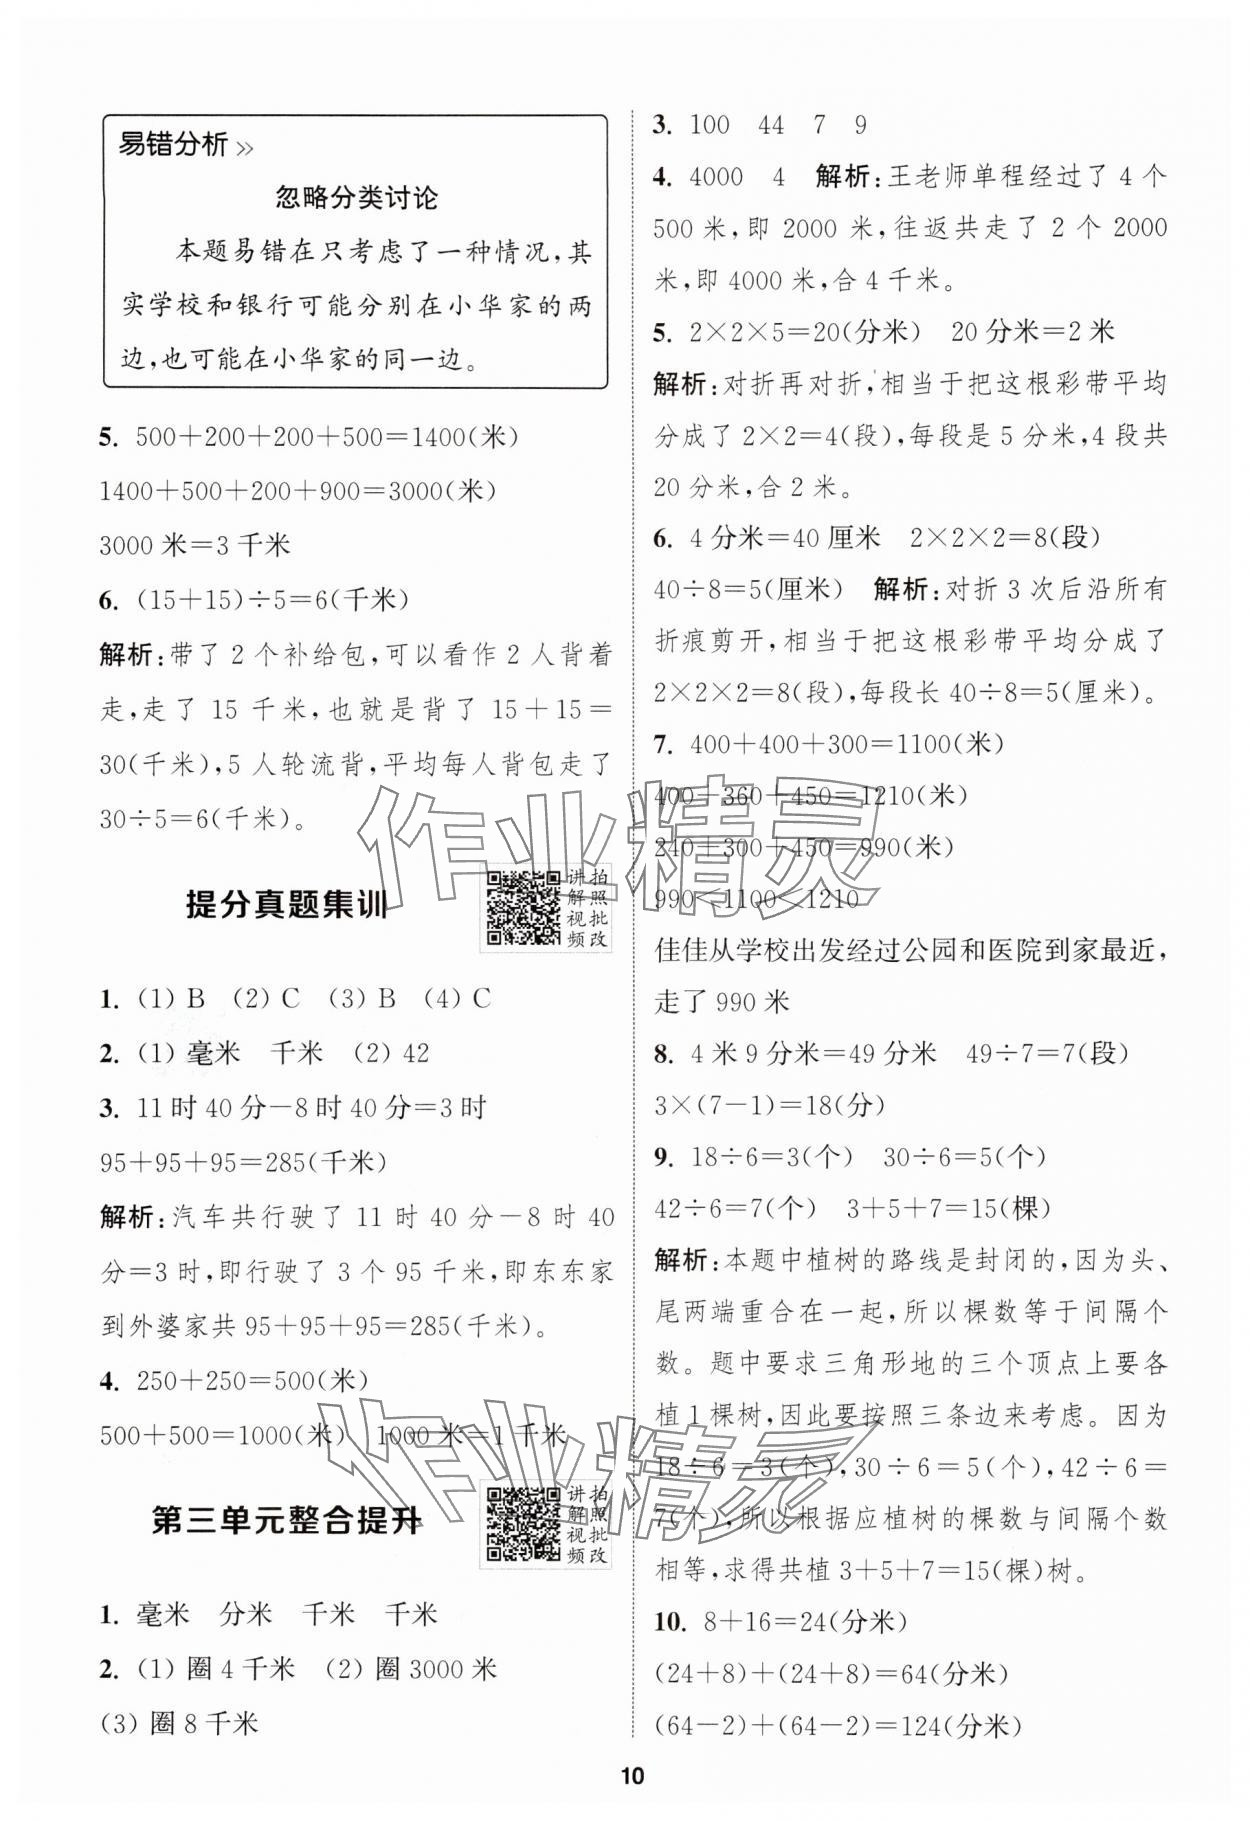 易错分析 >>
忽略分类讨论
本题易错在只考虑了一种情况,其
实学校和银行可能分别在小华家的两
边,也可能在小华家的同一边。
5. 500+200+200+500=1400(米)
1400+500+200+900=3000(米)
3000 米=3 千米
6. (15+15)÷5=6(千米)
解析:带了 2 个补给包,可以看作 2 人背着
走,走了 15 千米,也就是背了 15+15=
30(千米),5 人轮流背,平均每人背包走了
30÷5=6(千米)。
提分真题集训
讲拍
解照
视批
频改
1. (1) B (2) C (3) B (4) C
2. (1) 毫米 千米 (2) 42
3. 11 时 40 分-8 时 40 分=3 时
95+95+95=285(千米)
解析:汽车共行驶了 11 时 40 分-8 时 40
分=3 时,即行驶了 3 个 95 千米,即东东家
到外婆家共 95+95+95=285(千米)。
4. 250+250=500(米)
500+500=1000(米) 1000 米=1 千米
第三单元整合提升
讲拍
解照
视批
频改
1. 毫米 分米 千米 千米
2. (1) 圈 4 千米 (2) 圈 3000 米
(3) 圈 8 千米
3. 100 44 7 9
4. 4000 4 解析:王老师单程经过了 4 个
500 米,即 2000 米,往返共走了 2 个 2000
米,即 4000 米,合 4 千米。
5. 2×2×5=20(分米) 20 分米=2 米
解析:对折再对折,相当于把这根彩带平均
分成了 2×2=4(段),每段是 5 分米,4 段共
20 分米,合 2 米。
6. 4 分米=40 厘米 2×2×2=8(段)
40÷8=5(厘米) 解析:对折 3 次后沿所有
折痕剪开,相当于把这根彩带平均分成了
2×2×2=8(段),每段长 40÷8=5(厘米)。
7. 400+400+300=1100(米)
400+360+450=1210(米)
240+300+450=990(米)
990<1100<1210
佳佳从学校出发经过公园和医院到家最近,
走了 990 米
8. 4 米 9 分米=49 分米 49÷7=7(段)
3×(7-1)=18(分)
9. 18÷6=3(个) 30÷6=5(个)
42÷6=7(个) 3+5+7=15(棵)
解析:本题中植树的路线是封闭的,因为头、
尾两端重合在一起,所以棵数等于间隔个
数。题中要求三角形地的三个顶点上要各
植 1 棵树,因此要按照三条边来考虑。因为
18÷6=3(个),30÷6=5(个),42÷6=
7(个),所以根据应植树的棵数与间隔个数
相等,求得共植 3+5+7=15(棵)树。
10. 8+16=24(分米)
(24+8)+(24+8)=64(分米)
(64-2)+(64-2)=124(分米)
10
作业精灵
作业精灵